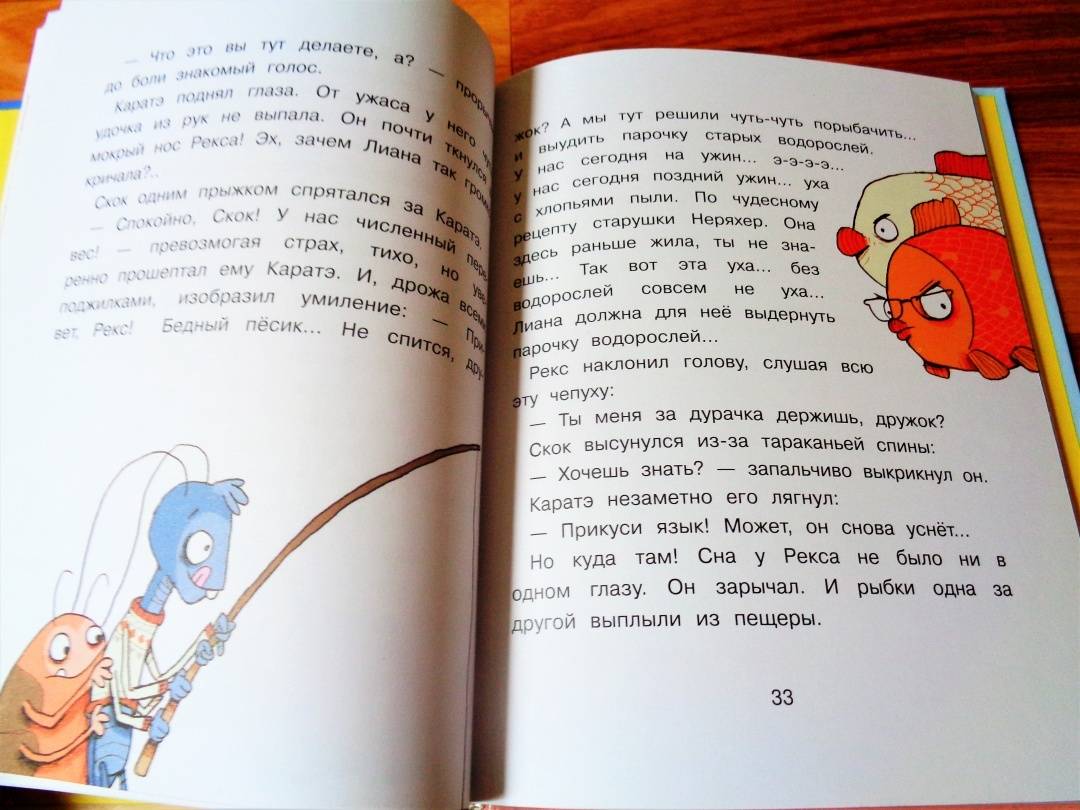 — Что это вы тут делаете, а? — проры
до боли знакомый голос.
Каратэ поднял глаза. От ужаса у него чу
удочка из рук не выпала. Он почти ткнулся
мокрый нос Рекса! Эх, зачем Лиана так громк
кричала?..
Скок одним прыжком спрятался за Каратэ.
— Спокойно, Скок! У нас численный пере-
вес! — превозмогая страх, тихо, но уве-
ренно прошептал ему Каратэ. И, дрожа всеми
поджилками, изобразил умиление: — При-
вет, Рекс! Бедный пёсик... Не спится, дру-
жок? А мы тут решили чуть-чуть порыбачить...
и выудить парочку старых водорослей.
У нас сегодня на ужин... э-э-э-э...
у нас сегодня поздний ужин... уха
с хлопьями пыли. По чудесному
рецепту старушки Неряхер. Она
здесь раньше жила, ты не зна-
ешь... Так вот эта уха... без
водорослей совсем не уха...
Лиана должна для неё выдернуть
парочку водорослей...
Рекс наклонил голову, слушая всю
эту чепуху:
— Ты меня за дурачка держишь, дружок?
Скок высунулся из-за тараканьей спины:
— Хочешь знать? — запальчиво выкрикнул он.
Каратэ незаметно его лягнул:
— Прикуси язык! Может, он снова уснёт...
Но куда там! Сна у Рекса не было ни в
одном глазу. Он зарычал. И рыбки одна за
другой выплыли из пещеры.
33